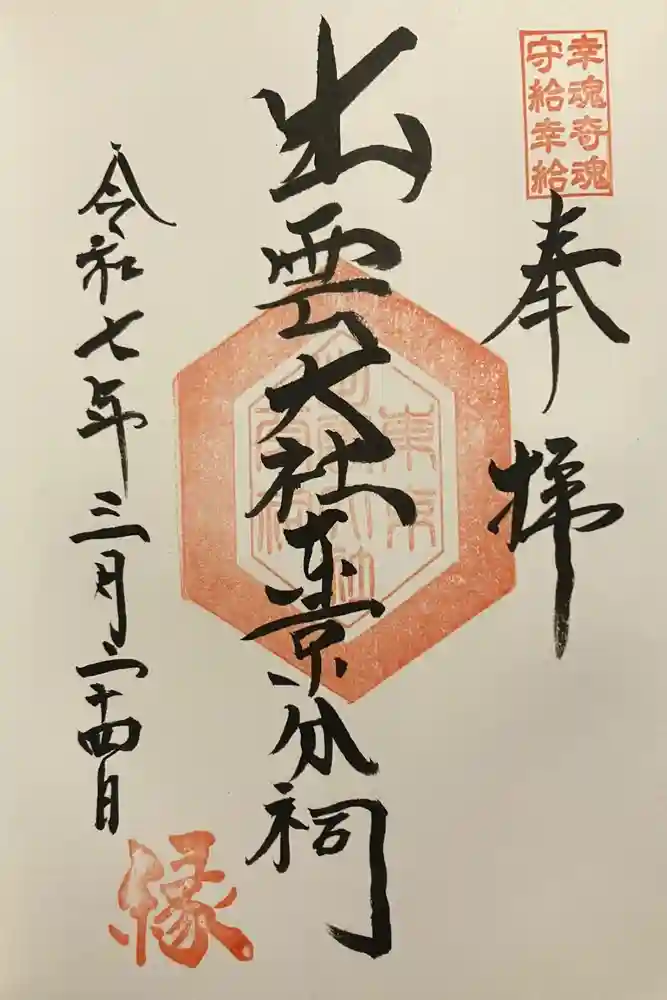 幸魂奇魂
守給幸給
奉拝
出雲大社東京分祠
令和七年三月二十四日
縁